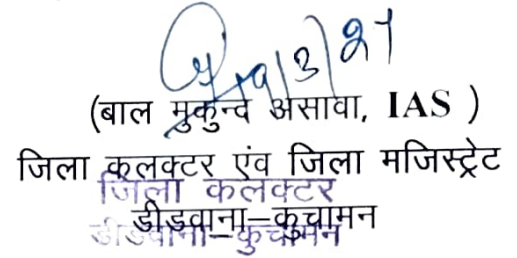 (बाल मुकुन्द असावा, IAS )
जिला कलक्टर एंव जिला मजिस्ट्रेट
जिला कलक्टर
डीडवाना–कुचामन
डीडवाना–कुचामन